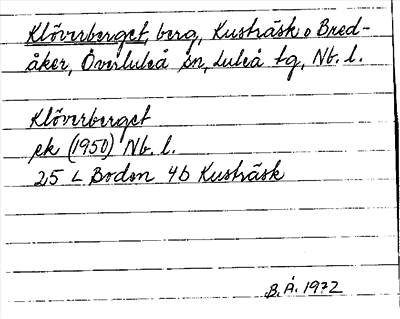 Klöverberget, berg, Kusträsk o Bred-
åker, Överluleå sn, Luleå tg, Nb. l.
Klöverberget
ek (1950) Nb. l.
25 L Boden 4b Kusträsk
B. Å. 1972